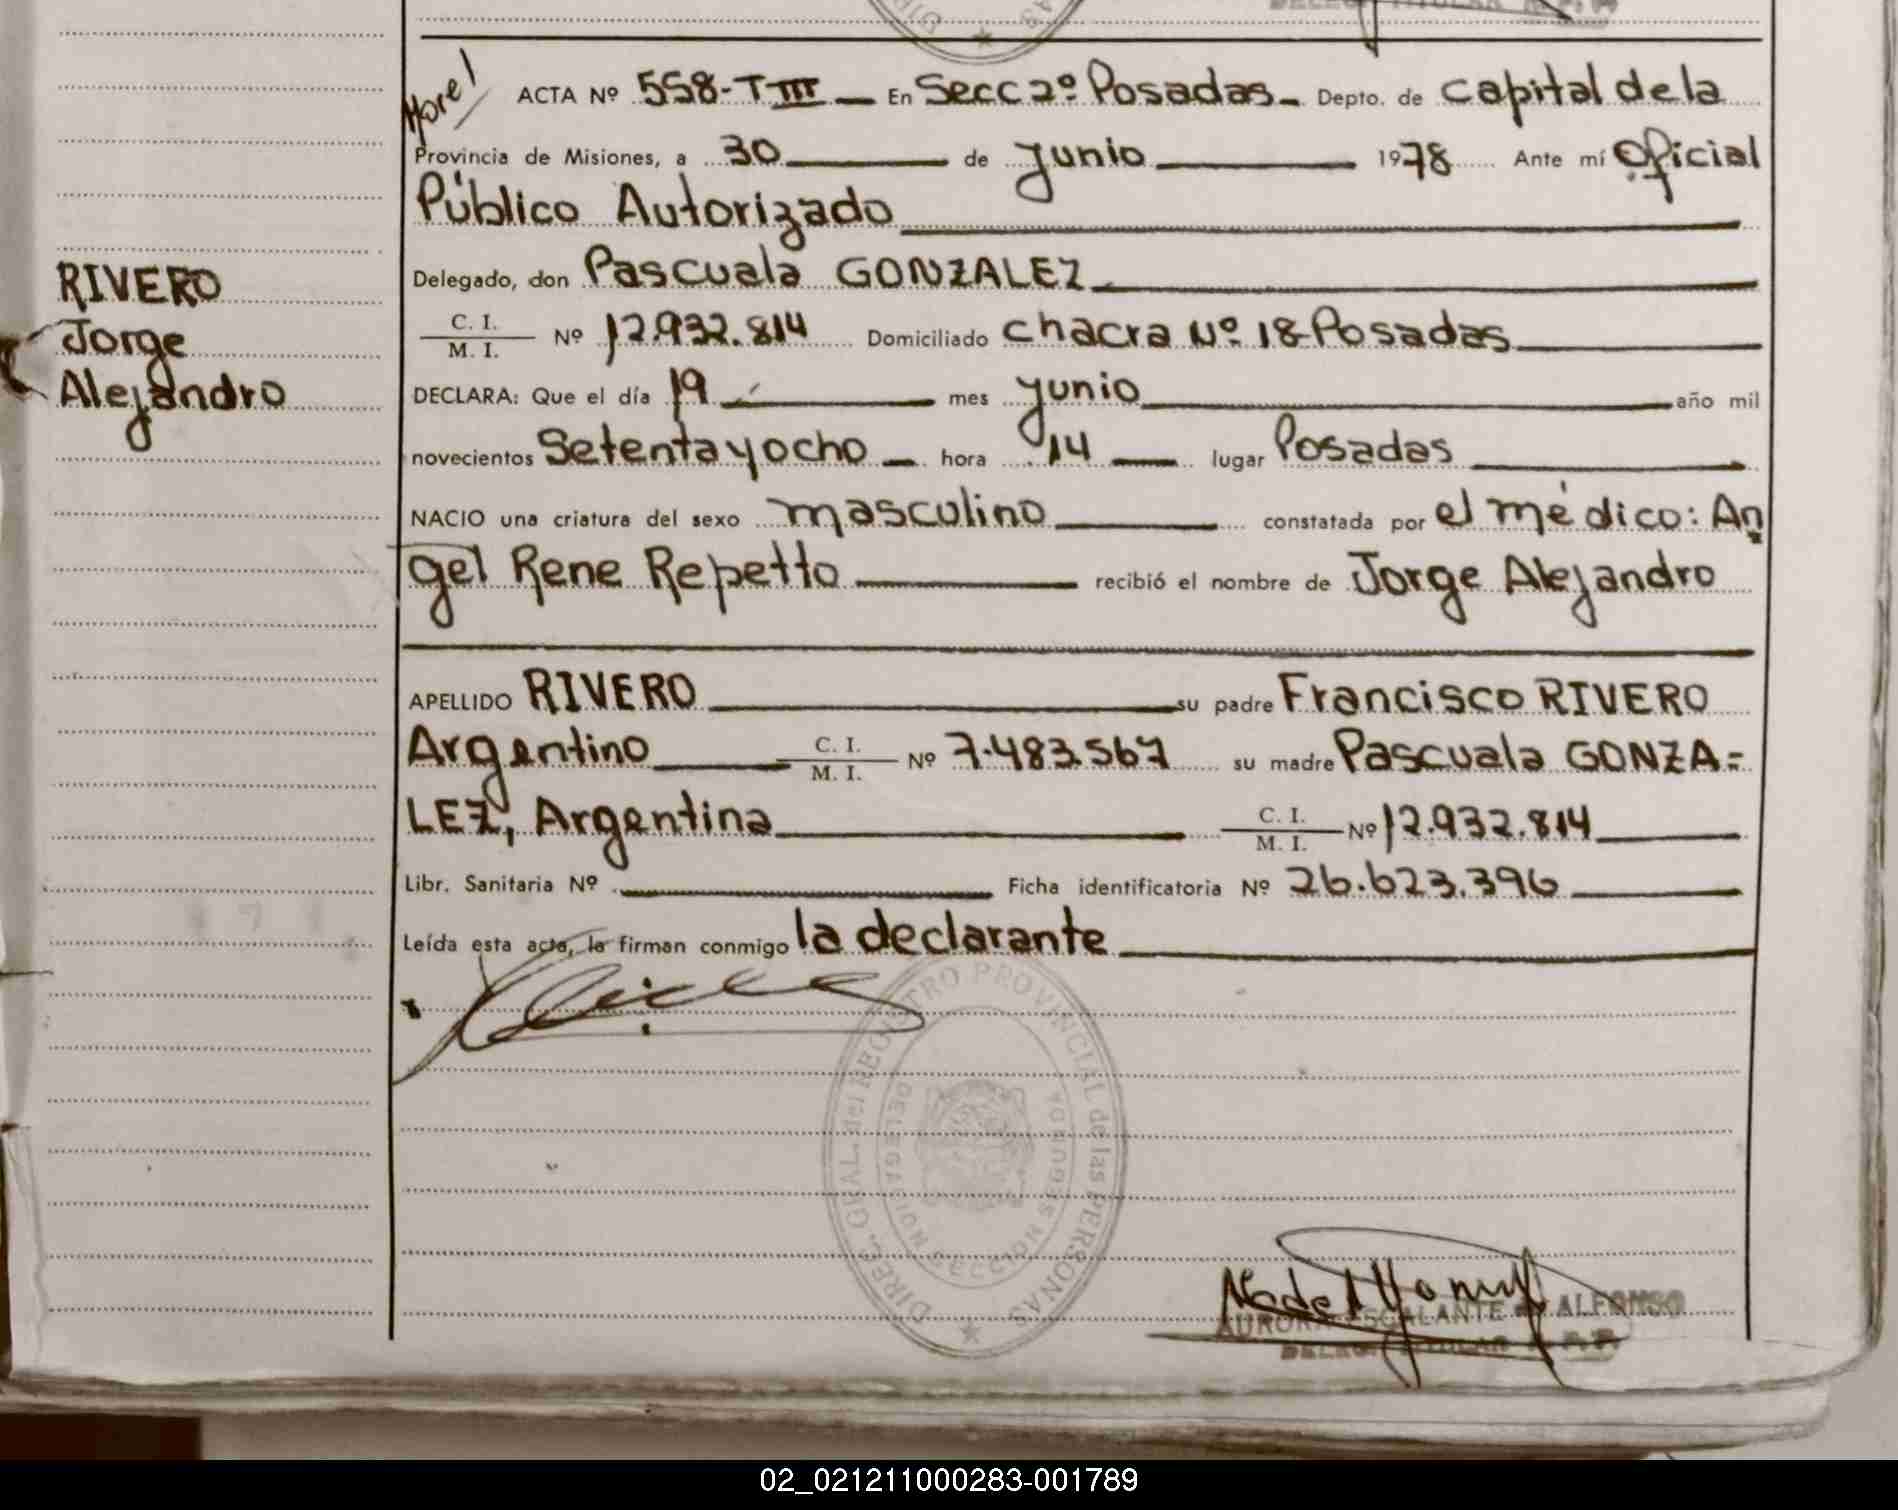 ACTA Nº 558-T III En Secc 2º Posadas Depto. de Capital de la
Provincia de Misiones, a 30 de Junio 1978 Ante mí Oficial
Público Autorizado
RIVERO
Jorge
Alejandro
Delegado, don Pascuala GONZALEZ
C. I.
M. I. Nº 12.932.814 Domiciliado Chacra Nº 18-Posadas
DECLARA: Que el día 19 mes Junio año mil
novecientos Setenta y ocho hora 14 lugar Posadas
NACIO una criatura del sexo masculino constatada por el médico: An
gel Rene Repetto recibió el nombre de Jorge Alejandro
APELLIDO RIVERO su padre Francisco RIVERO
Argentino C. I.
M. I. Nº 7.483.567 su madre Pascuala GONZA=
LEZ, Argentina C. I.
M. I. Nº 12.932.814
Libr. Sanitaria Nº Ficha identificatoria Nº 26.623.396
Leída esta acta, la firman conmigo la declarante
DIREC. GRAL. del REGISTRO PROVINCIAL de las PERSONAS
DELEGACION SECCION SEGUNDA
AURORA ESCALANTE de ALFONSO
DELEG. TITULAR R. P. P.
02_021211000283-001789